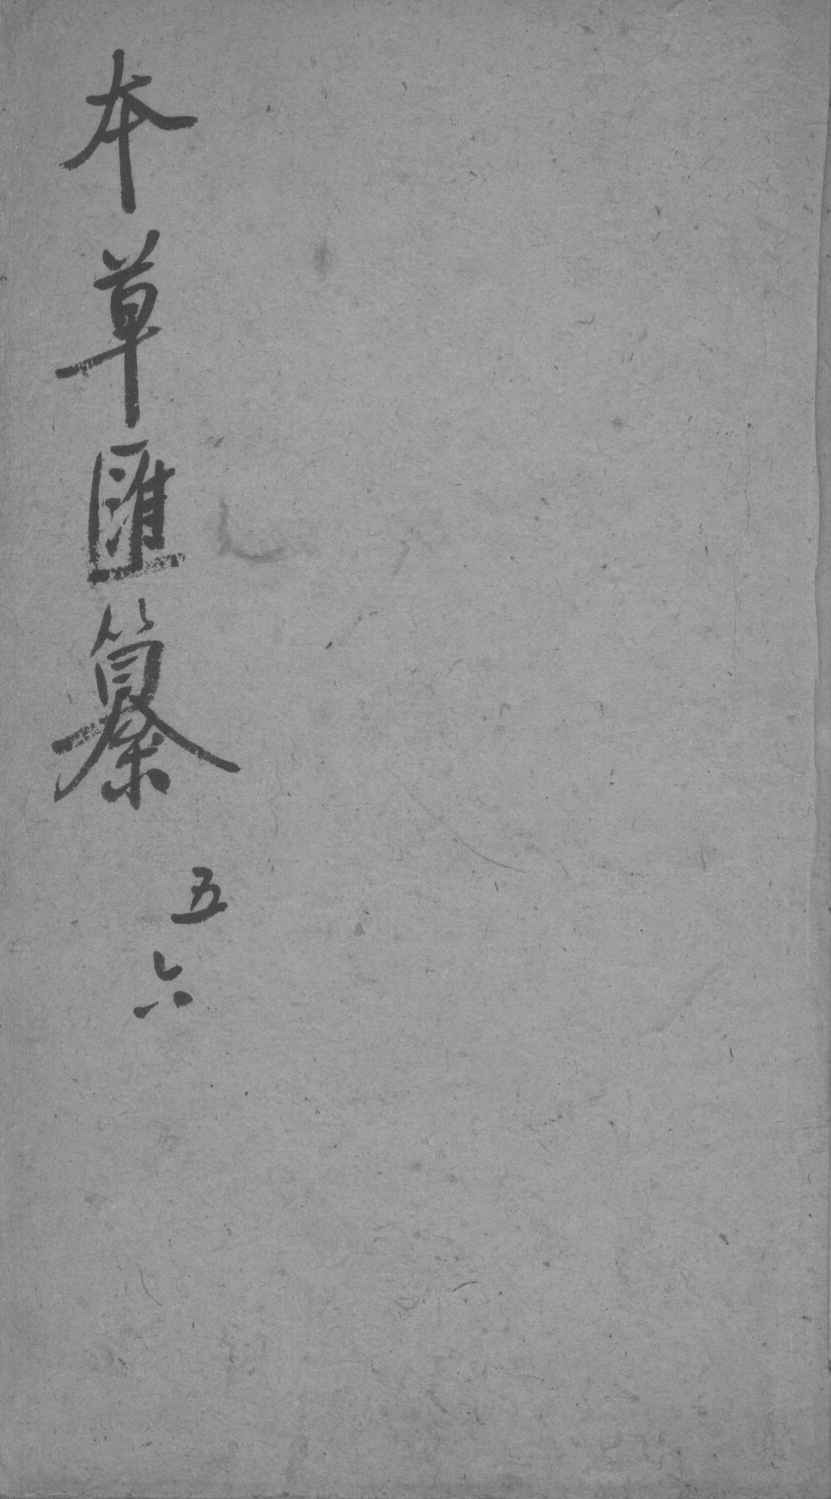 本草匯纂
五
六